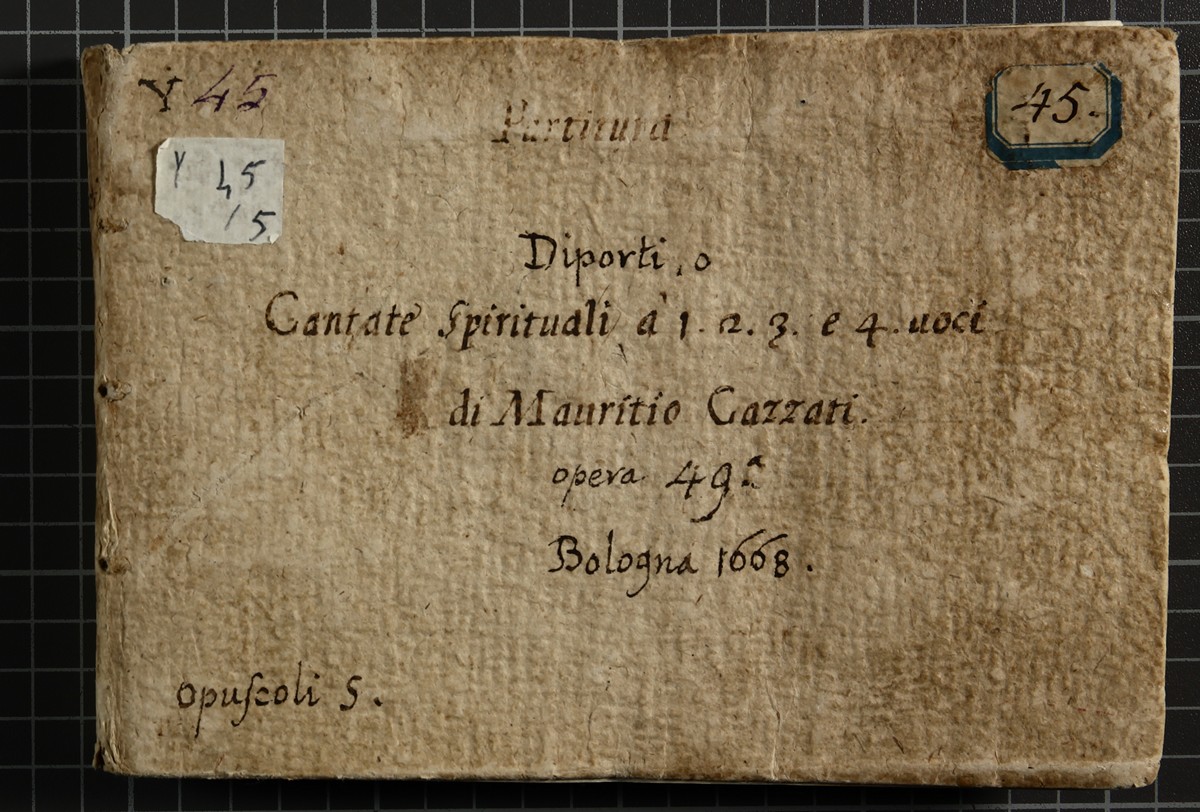 Y 45
45.
Partitura
Y 45
/ 5.
Diporti, o
Cantate Spirituali à 1. 2. 3. e 4. uoci
di Mauritio Cazzati.
opera 49.a
Bologna 1668.
opuscoli 5.